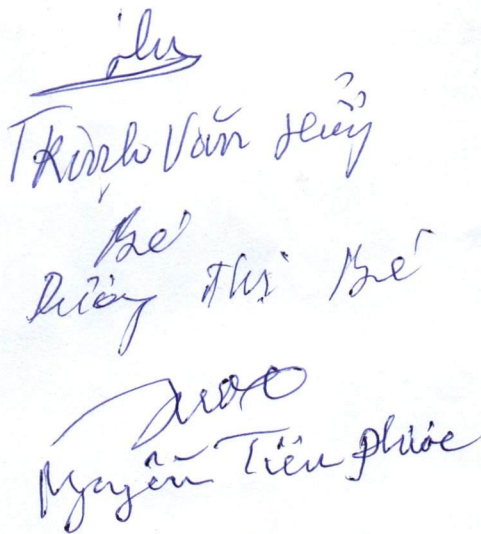 Trịnh Văn Huỷ
Bé
Dương Thị Bé
Nguyễn Tiến Phước